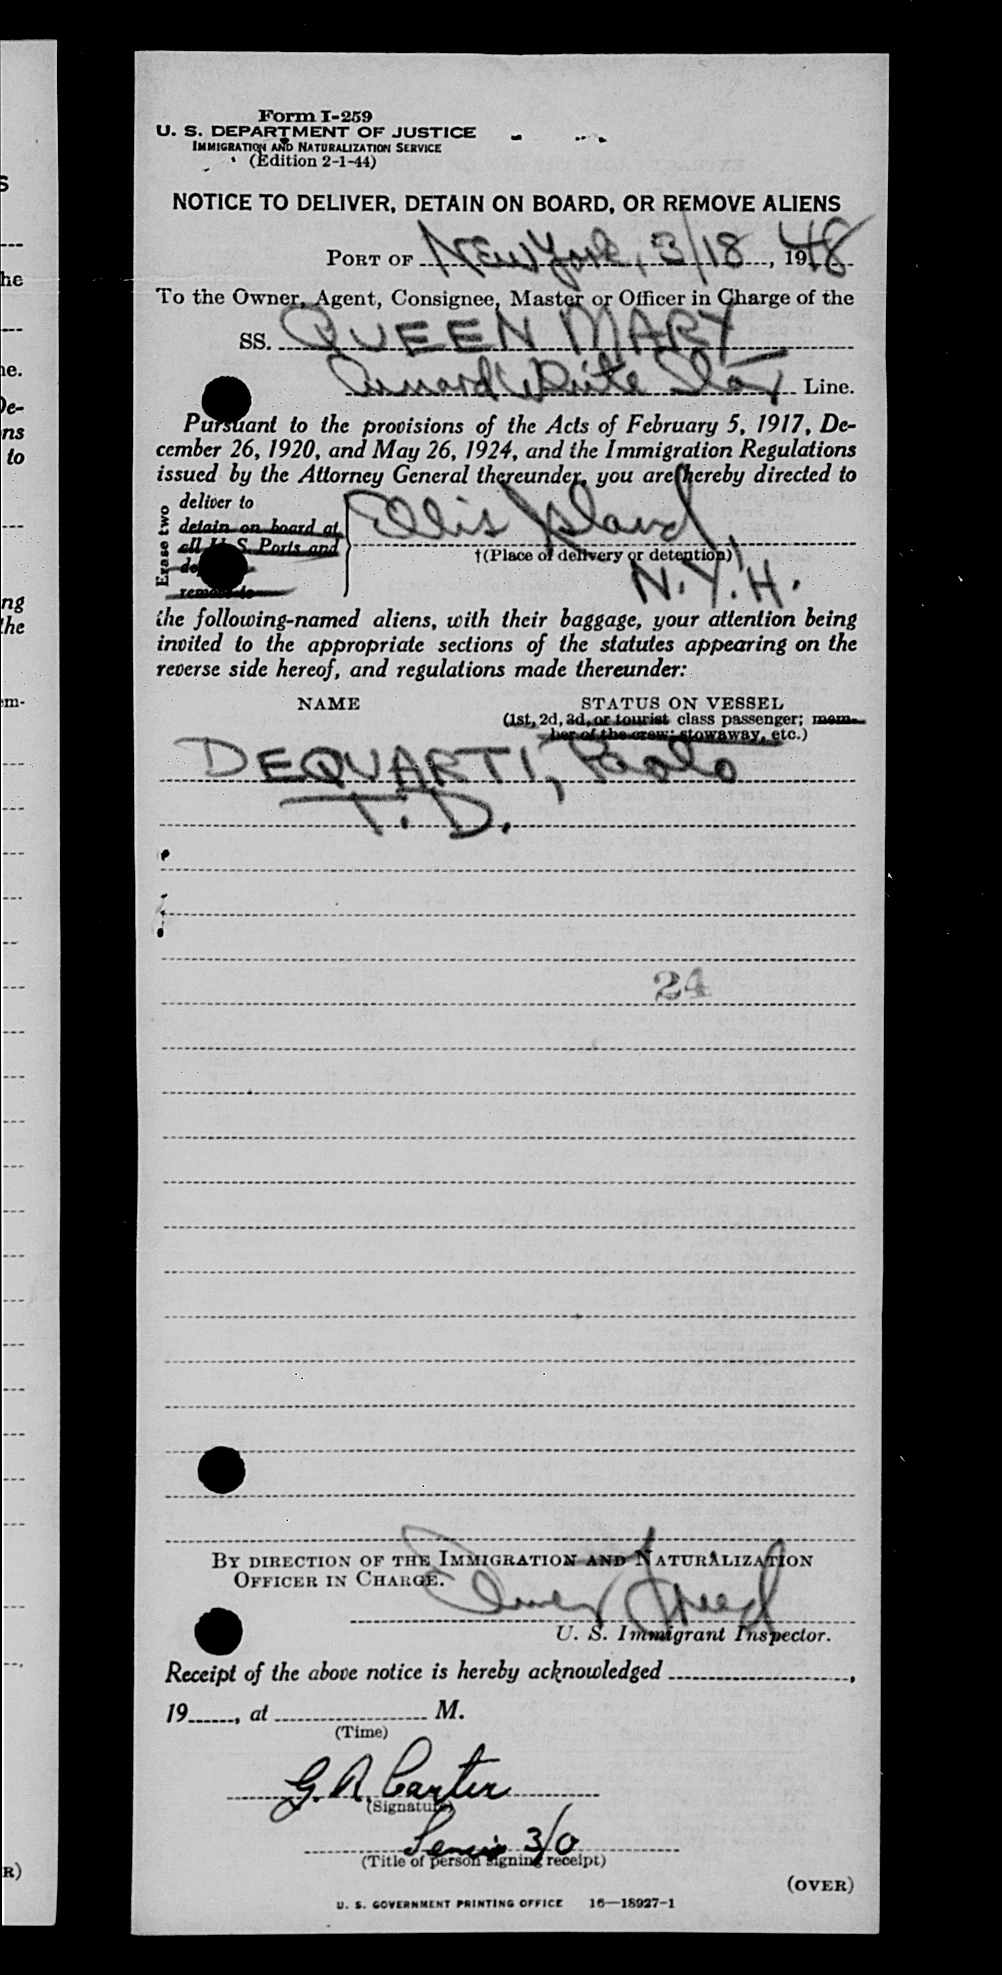 Form I-259
U. S. DEPARTMENT OF JUSTICE
IMMIGRATION AND NATURALIZATION SERVICE
(Edition 2-1-44)
NOTICE TO DELIVER, DETAIN ON BOARD, OR REMOVE ALIENS
PORT OF New York, 3/18, 1948
To the Owner, Agent, Consignee, Master or Officer in Charge of the
SS. QUEEN MARY
Cunard White Star Line.
Pursuant to the provisions of the Acts of February 5, 1917, De-
cember 26, 1920, and May 26, 1924, and the Immigration Regulations
issued by the Attorney General thereunder, you are hereby directed to
Erase two
deliver to
detain on board at
all U. S. Ports and
remove to
Ellis Island,
†(Place of delivery or detention)
N.Y.H.
the following-named aliens, with their baggage, your attention being
invited to the appropriate sections of the statutes appearing on the
reverse side hereof, and regulations made thereunder:
NAME STATUS ON VESSEL
(1st, 2d, 3d, or tourist class passenger; mem-
ber of the crew; stowaway, etc.)
DEQUARTI, Paolo
T. D.
24
BY DIRECTION OF THE IMMIGRATION AND NATURALIZATION
OFFICER IN CHARGE.
U. S. Immigrant Inspector.
Receipt of the above notice is hereby acknowledged ,
19 , at M.
(Time)
G. A. Carter
(Signature)
Senior 3/O
(Title of person signing receipt)
(OVER)
U. S. GOVERNMENT PRINTING OFFICE 16—18927-1